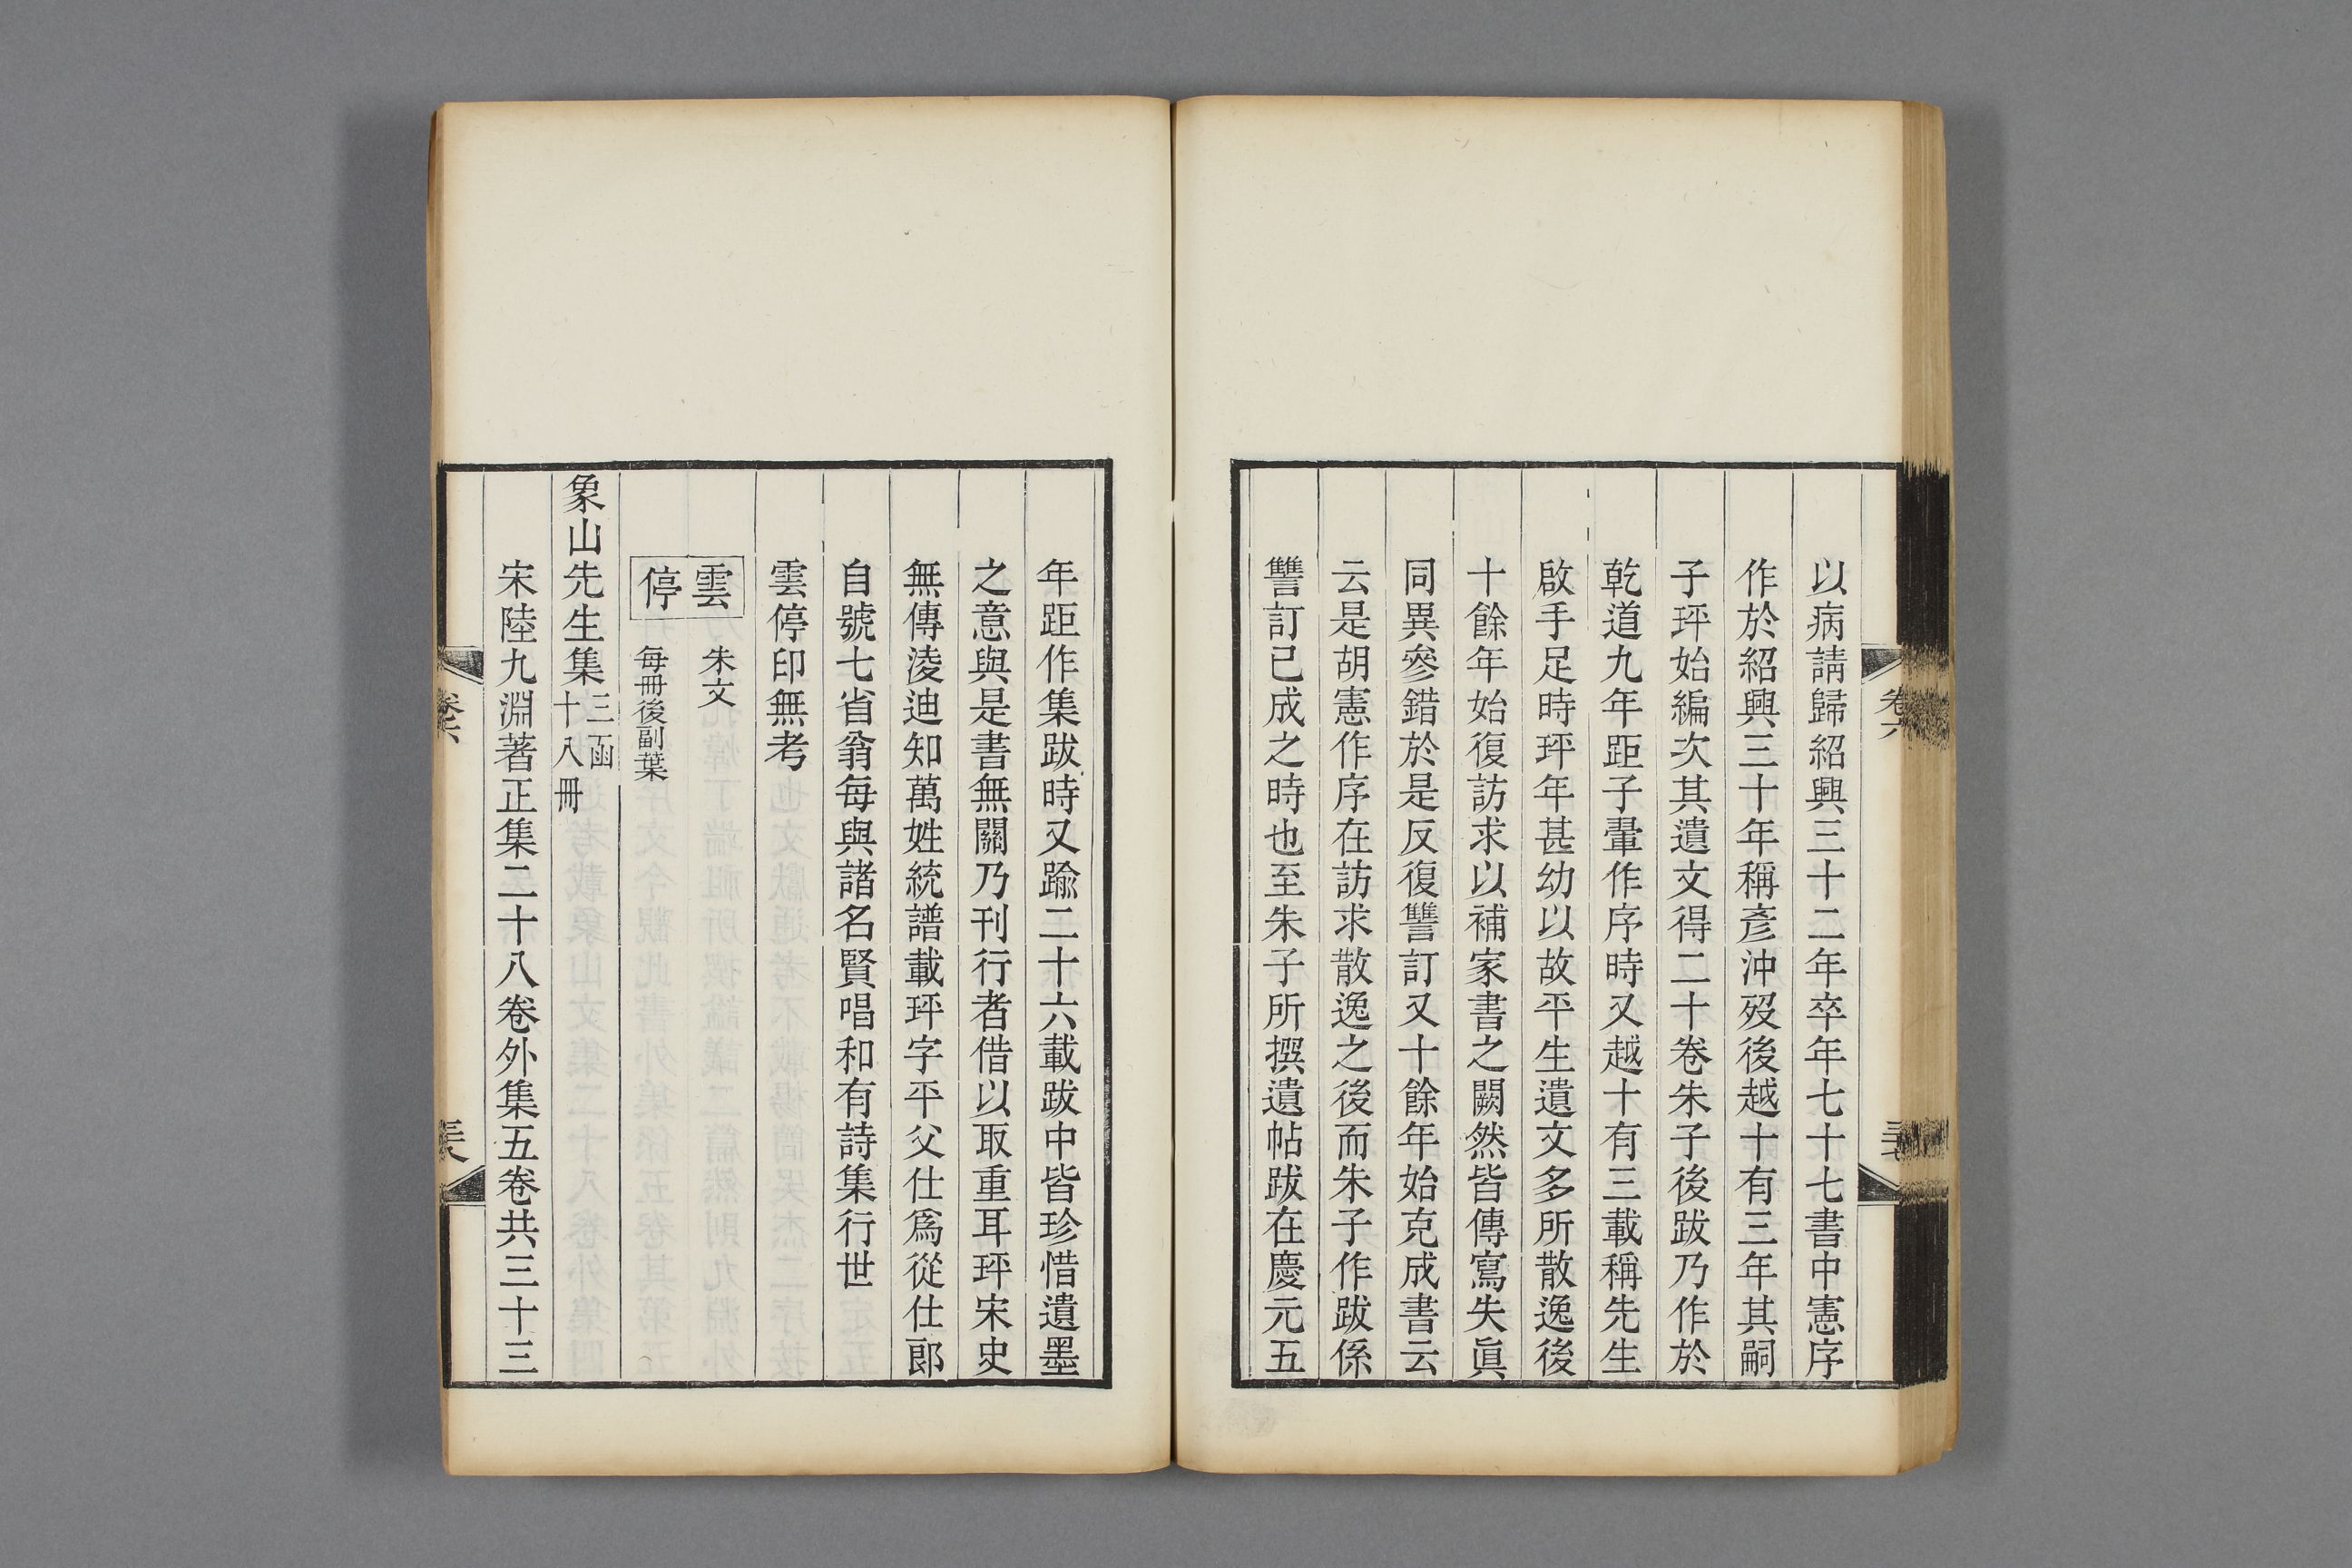 以病請歸紹興三十二年卒年七十七書中憲序
作於紹興三十年稱彥沖歿後越十有三年其嗣
子玶始編次其遺文得二十卷朱子後跋乃作於
乾道九年距子翬作序時又越十有三載稱先生
啟手足時玶年甚幼以故平生遺文多所散逸後
十餘年始復訪求以補家書之闕然皆傳寫失眞
同異參錯於是反復讐訂又十餘年始克成書云
云是胡憲作序在訪求散逸之後而朱子作跋係
讐訂已成之時也至朱子所撰遺帖跋在慶元五
卷六
年距作集跋時又踰二十六載跋中皆珍惜遺墨
之意與是書無關乃刊行者借以取重耳玶宋史
無傳淩迪知萬姓統譜載玶字平父仕爲從仕郎
自號七省翁每與諸名賢唱和有詩集行世
雲停印無考
雲停
朱文
每冊後副葉
象山先生集 三函
十八冊
宋陸九淵著正集二十八卷外集五卷共三十三